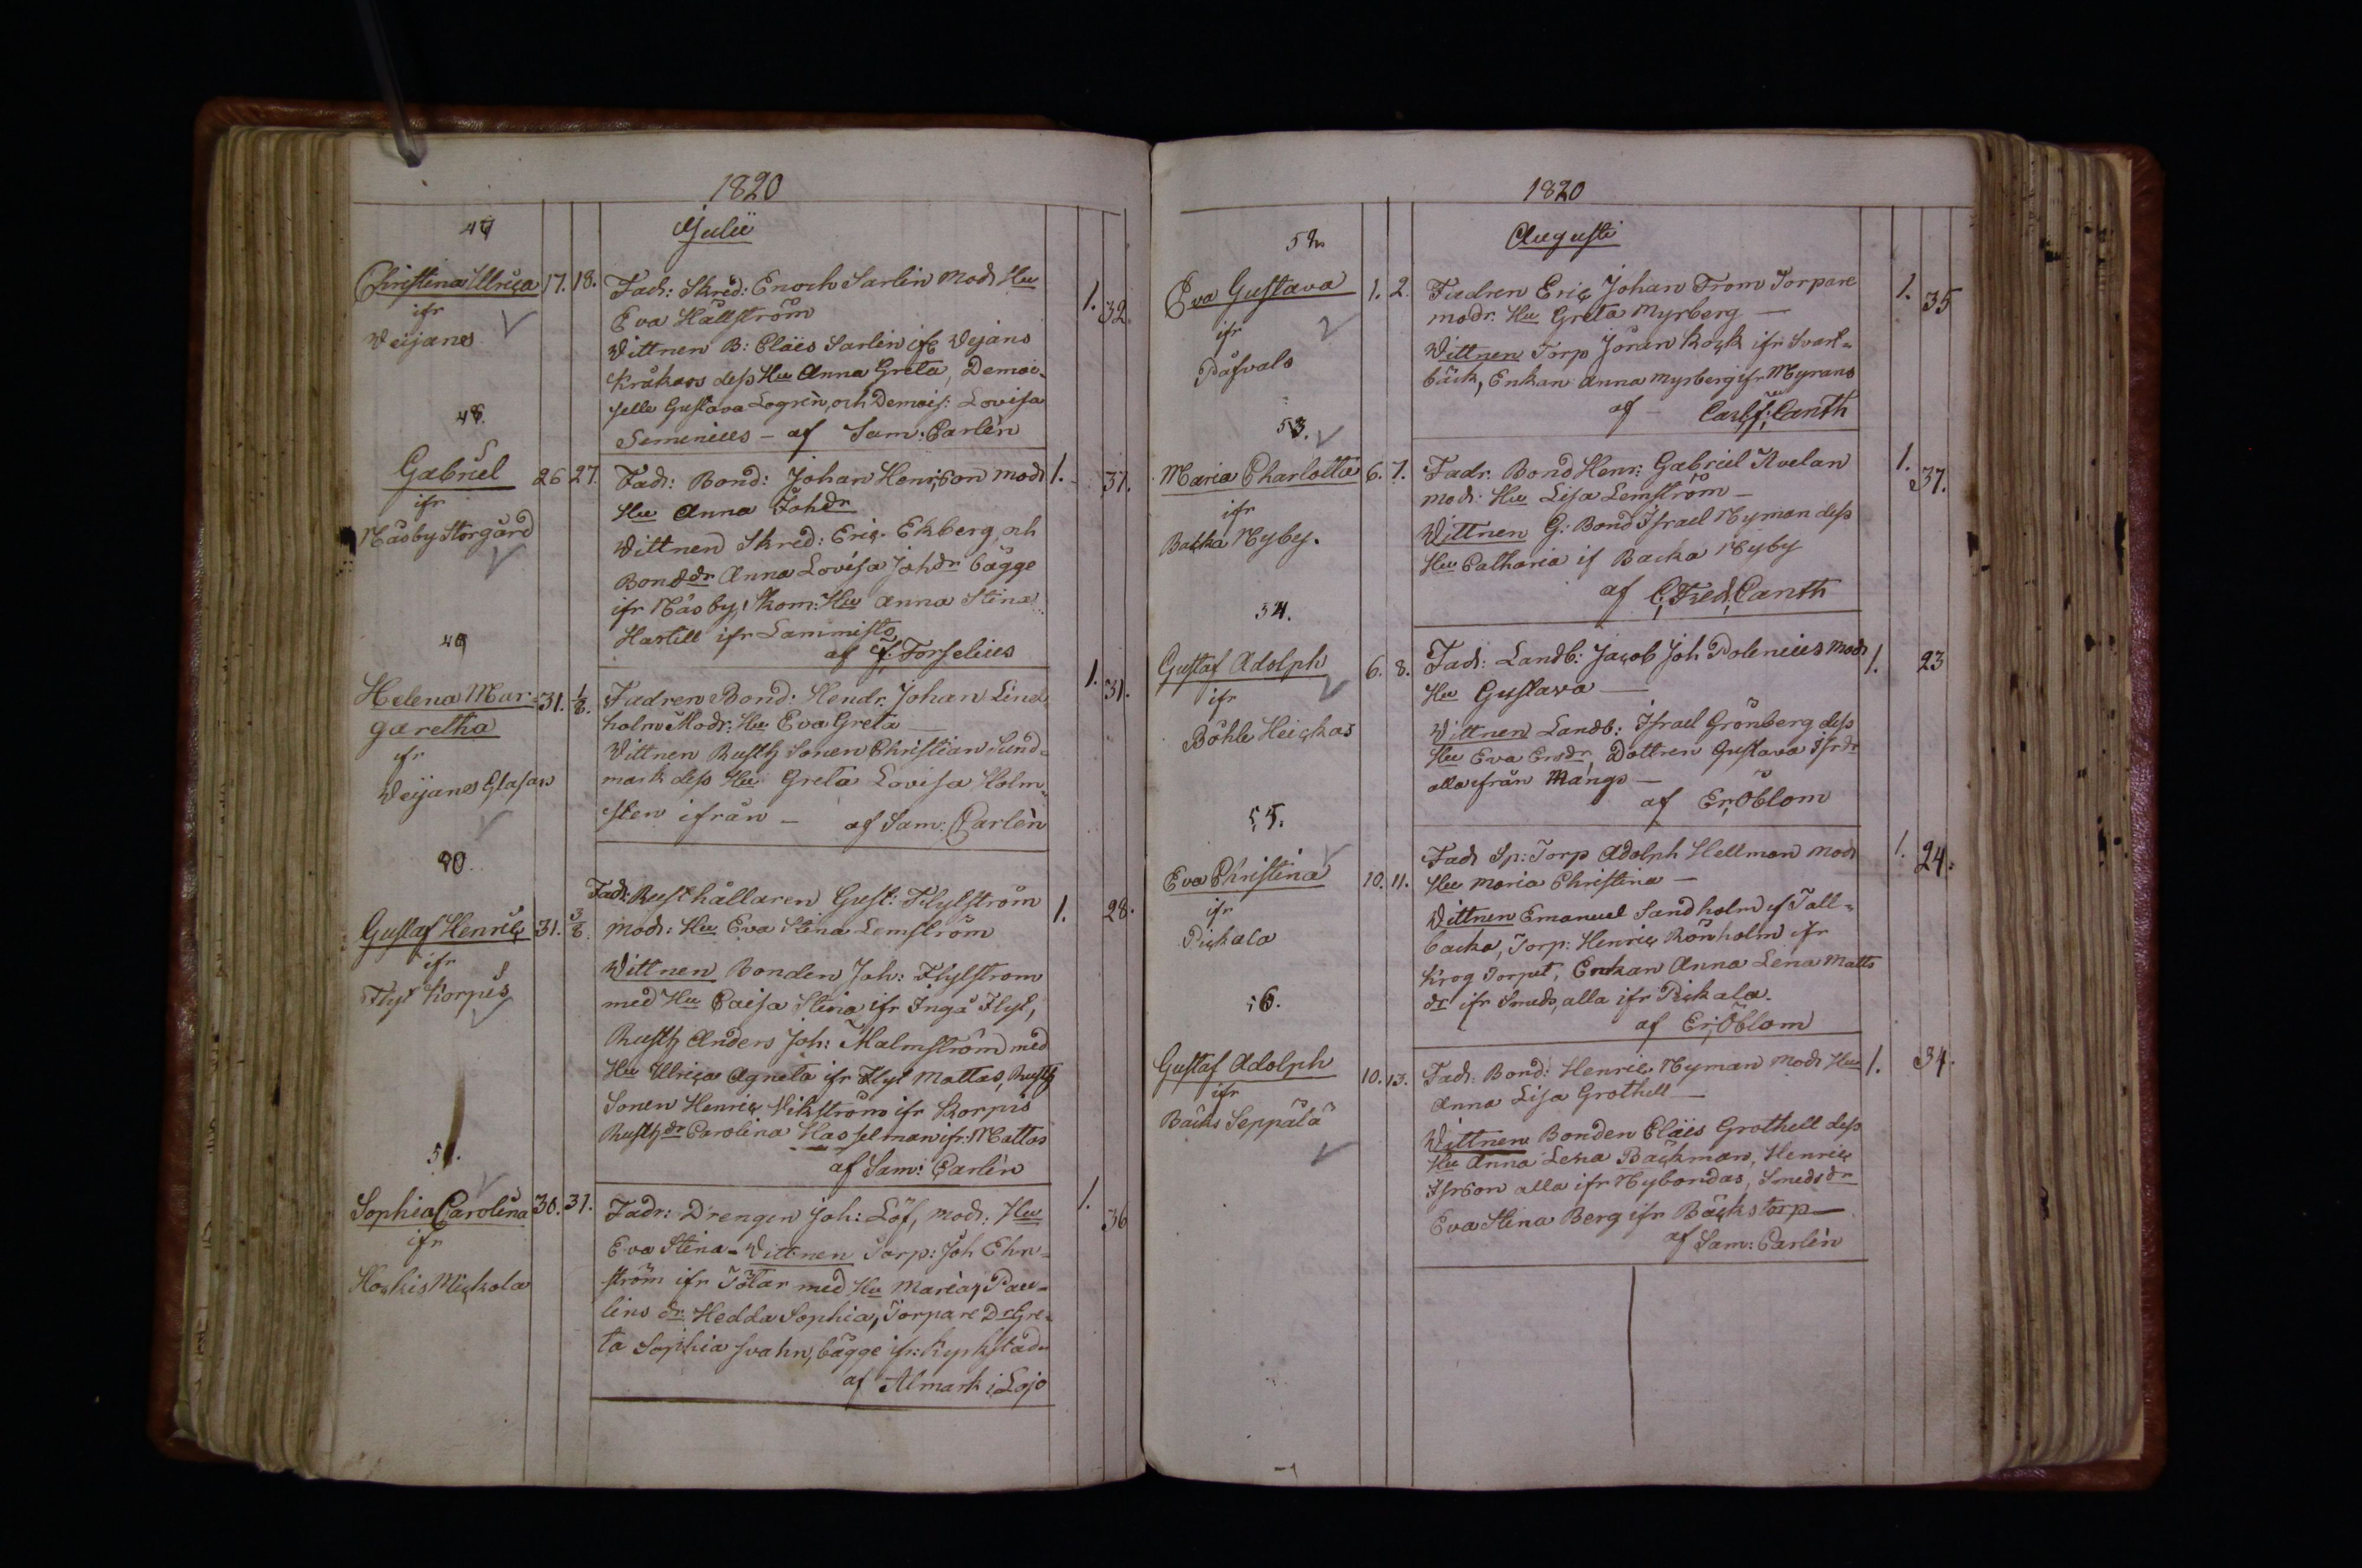 1820
Julii
47
Christina Ulrica 17. 18. Fadr: Skred: Enoch Sarlin Modr Hu 1. 32.
ifr Eva Hällström
Weijans Wittnen B: Claes Sarlin ifr Wejans
Kråkars dess Hu Anna Greta, Demoi-
selle Gustava Logrén, och Demois: Lovisa
Semenius - af Sam: Carlén
48.
Gabriel 26 27. Fadr: Bond: Johan Henricson modr 1. 31.
ifr Hu Anna Johdr
Näsby Storgård Wittnen Skred: Eric Ekberg, och
Bonddr Anna Lovisa Johdr bägge
ifr Näsby, Skom: Hu Anna Stina
Hartell ifr Lammists
af f. Forselius
49
Helena Mar- 31. 1/8. Fadren Bond: Hendr. Johan Lind 1. 31.
garetha holm Modr: Hu Eva Greta
ifr Wittnen Rusth Sonen Christian Sund-
Weijans Glasars mark dess Hu Greta Lovisa Holm-
sten ifrån - af Sam: Carlén
50.
Fadr: Rusthållaren Gust: Flylström 1. 28.
Gustaf Henric 31. 3/8. modr: Hu Eva Stina Lemström
ifr Wittnen Bonden Joh: Flylström
Flyt Korpis med Hu Caisa Stina ifr Ingå Flyt,
Rusth Anders Joh: Malmström med
Hu Ulrica Agneta ifr Flyt Mattas, Rusth
Sonen Henric Vikström ifr Korpis
Rusthdr Carolina Hasselman ifr: Mattas
af Sam: Carlén
51.
Sophia Carolina 30. 31. Fadr: Drengen Joh: Löf, modr: Hu 1. 36
ifr Eva Stina - Wittnen Torp: Joh Ehn-
Hoskis Mickola ström ifr Tötar med Hu Maria, Pau-
lins dr Hedda Sophia, Torpare Dr Gre-
ta Sophia Svahn, bägge ifr: Kyrkstad
af Almark i Lojo
1820
Augusti
52
Eva Gustava 1. 2. Fadren Eric Johan From Torpare 1. 35
ifr modr. Hu Greta Myrberg —
Påfvals Wittnen Torp Jöran Kock ifr Svart-
bäck, Enkan Anna Myrberg ifr Myrans
af - Carl f: Canth
53.
Maria Charlotta 6. 7. Fadr. Bond Henr: Gabriel Avelan 1. 37.
ifr modr: Hu Lisa Lemström -
Backa Nyby. Wittnen G: Bond Israel Nyman dess
Hu Catharia if Backa Nyby
af C: Fred: Canth
54.
Gustaf Adolph 6. 8. Fadr: Landb: Jacob Joh Polenius Modr 1. 23
ifr Hu Gustava —
Böhle Heickas Wittnen Landb: Israel Grönberg dess
Hu Eva Ersdr, Dottren Gustava Isrdr
alla ifrån Mangs —
af Er: Öblom
55.
Eva Christina 10. 11. Fadr Sp: Torp Adolph Hellman Modr 1. 24.
ifr Hu Maria Christina —
Pickala Wittnen Emanuel Sandholm if Tall-
backa, Torp: Henric Rönholm ifr
Krog Torpet, Enkan Anna Lena Matts
dr ifr Smeds, alla ifr Pickala.
af Er: Öblom
56.
Gustaf Adolph 10. 13. Fadr: Bond: Henric Nyman Modr Hu 1. 34.
ifr Anna Lisa Grothell —
Bäcks Seppälä Wittnen Bonden Claës Grothell dess
Hu Anna Lena Bäckman, Henric
Isrson alla ifr Nybondas, Smedsdr
Eva Stina Berg ifr Bäckstorp —
af Sam: Carlén